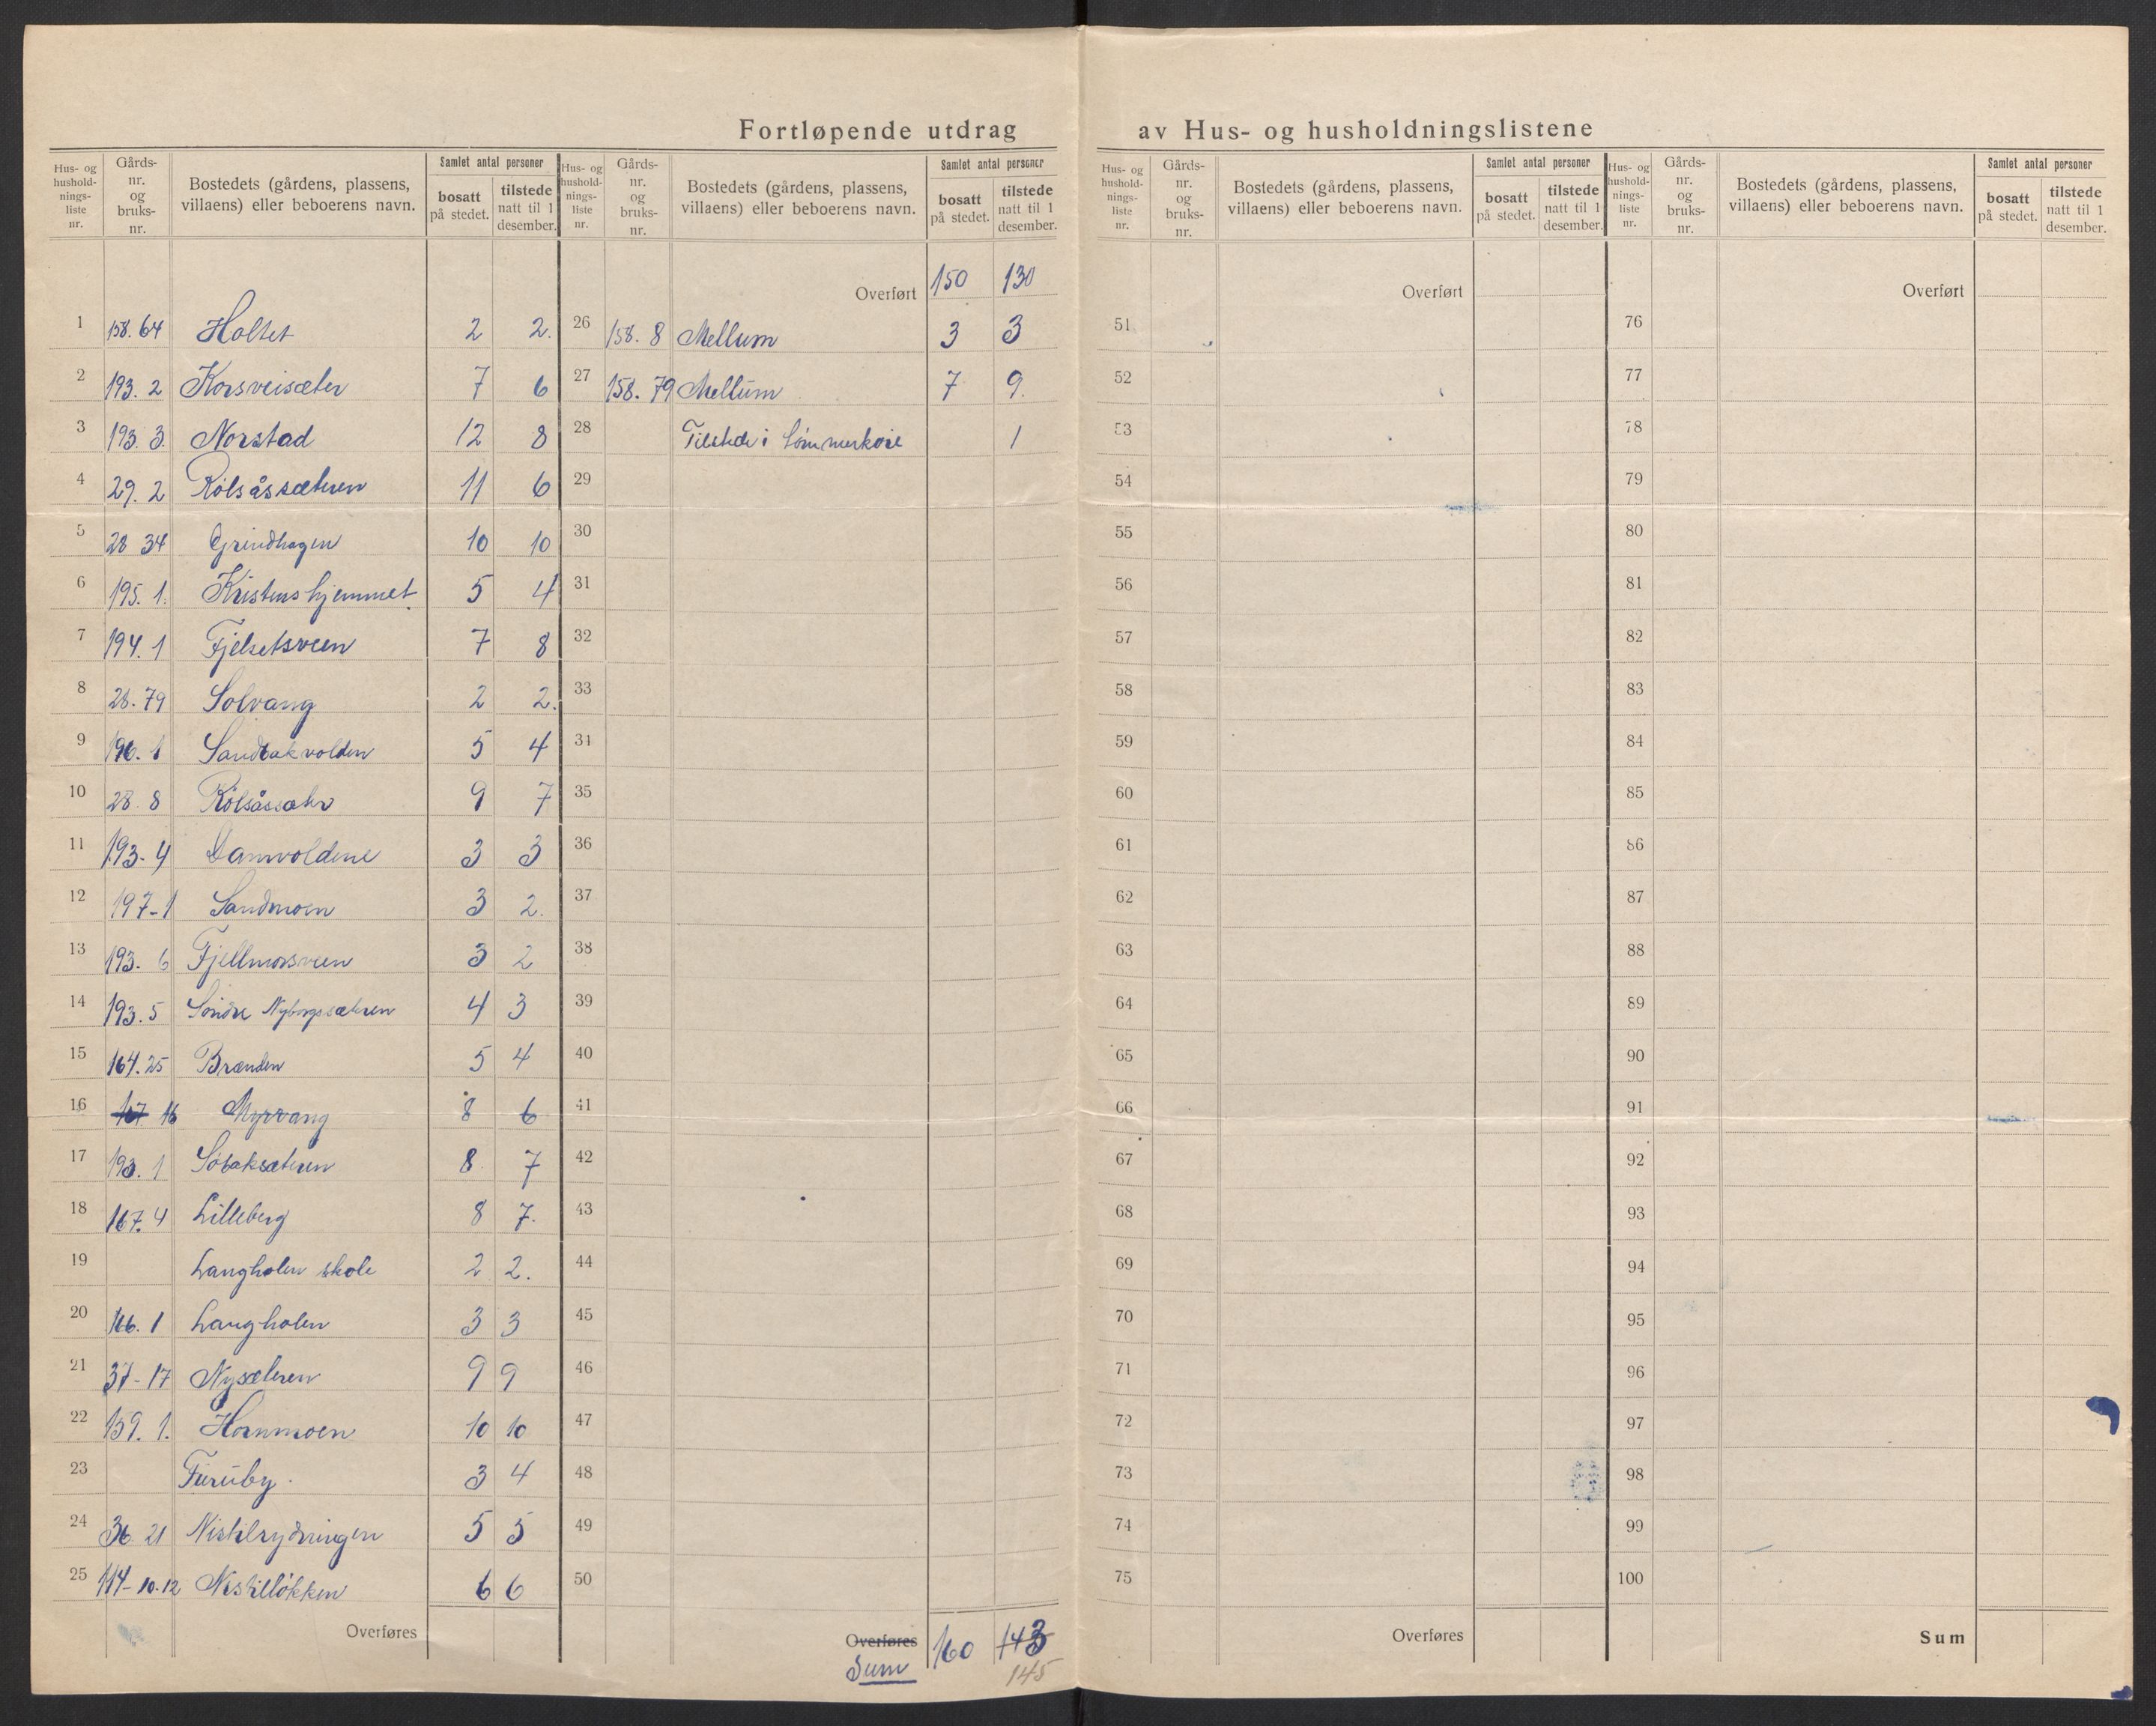 Fortløpende utdrag av Hus- og husholdningslistene
Hus- og hushold-nings-liste nr. Gårds-nr. og bruks-nr. Bostedets (gårdens, plassens, villaens) eller beboerens navn. Samlet antal personer bosatt på stedet. tilstede natt til 1 desember.
1 158. 64 Holtet 2 2.
2 193. 2 Korsveisæter 7 6
3 193. 3. Norstad 12 8
4 29. 2 Rölsåssæteren 11 6
5 28 34 Grindhagen 10 10
6 195. 1. Kristenshjemmet 5 4
7 194. 1 Fjelsetsveen 7 8
8 28. 79 Solvang 2 2.
9 196. 1 Sandbakvolden 5 4
10 28. 8 Rölsåssæter 9 7
11 193- 4 Damvoldene 3 3
12 197-1 Sandmoen 3 2.
13 193. 6 Fjellmorsveen 3 2
14 193. 5 Söndre Nyborgssæteren 4 3
15 164. 25 Brænden 5 4
16 167 16 Myrvang 8 6
17 193. 1 Söbaksæteren 8 7
18 167. 4 Lilleberg 8 7.
19 Langholen skole 2 2.
20 166. 1 Langholen 3 3
21 37-17 Nysæteren 9 9
22 159. 1. Hornmoen 10 10
23 Furuby. 3 4
24 36. 21 Nistilrydningen 5 5
25 114-10.12 Nistilløkken 6 6
Overføres
Hus- og hushold-nings-liste nr. Gårds-nr. og bruks-nr. Bostedets (gårdens, plassens, villaens) eller beboerens navn. Samlet antal personer bosatt på stedet. tilstede natt til 1 desember.
Overført 150 130
26 158. 8 Mellum 3 3
27 158. 79 Mellum 7 9.
28 Tilstede i tömmerkoie 1
29
30
31
32
33
34
35
36
37
38
39
40
41
42
43
44
45
46
47
48
49
50
Overføres 160 143
Sum 145
Hus- og hushold-nings-liste nr. Gårds-nr. og bruks-nr. Bostedets (gårdens, plassens, villaens) eller beboerens navn. Samlet antal personer bosatt på stedet. tilstede natt til 1 desember.
Overført
51
52
53
54
55
56
57
58
59
60
61
62
63
64
65
66
67
68
69
70
71
72
73
74
75
Overføres
Hus- og hushold-nings-liste nr. Gårds-nr. og bruks-nr. Bostedets (gårdens, plassens, villaens) eller beboerens navn. Samlet antal personer bosatt på stedet. tilstede natt til 1 desember.
Overført
76
77
78
79
80
81
82
83
84
85
86
87
88
89
90
91
92
93
94
95
96
97
98
99
100
Sum